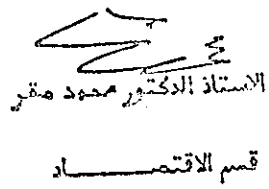 الاستاذ الدكتور محمود صقر
قسم الاقتصــــــاد